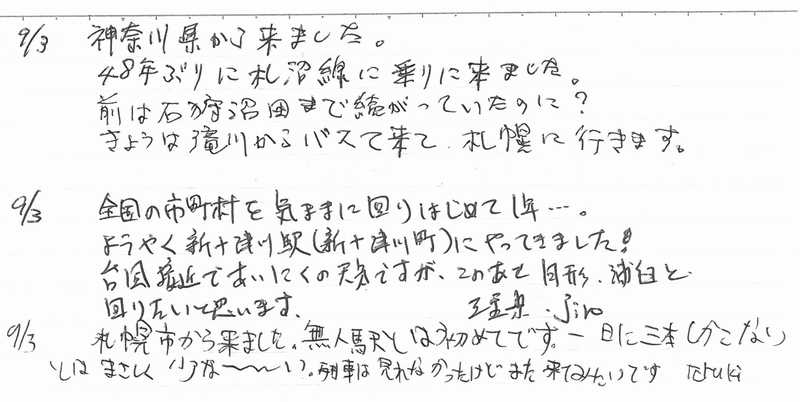 9/3 神奈川県から来ました。
48年ぶりに札沼線に乗りに来ました。
前は石狩沼田まで続がっていたのに?
きょうは滝川からバスで来て、札幌に行きます。
9/3 全国の市町村を気ままに回りはじめて1年…。
ようやく新十津川駅(新十津川町)にやってきました!
台風接近であいにくの天気ですが、このあと月形、浦臼と
回りたいと思います。 三重県・Jiro
9/3 札幌市から来ました。無人駅とは初めてです。一日に三本しかこない
とは まさしく 少な〜〜い。列車は見れなかったけどまた来てみたいです